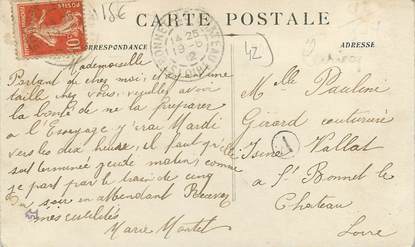 CARTE POSTALE
CORRESPONDANCE
ADRESSE
42
14 25
19-5
12
10
POSTES
Mademoiselle
Partant de chez moi, ayant une
taille chez vous, veuillez avoir
la bonté de me la préparer
à l'Essayage j'irai Mardi
vers les dix heures, il faut qu'elle
soit terminée
matin, comme
je part par le train de cinq
du soir en attendant Recevez
mes civilités
Marie Montel
Melle Pauline
Girard couturière
Vallat
à St Bonnet le
Chateau
Loire
A